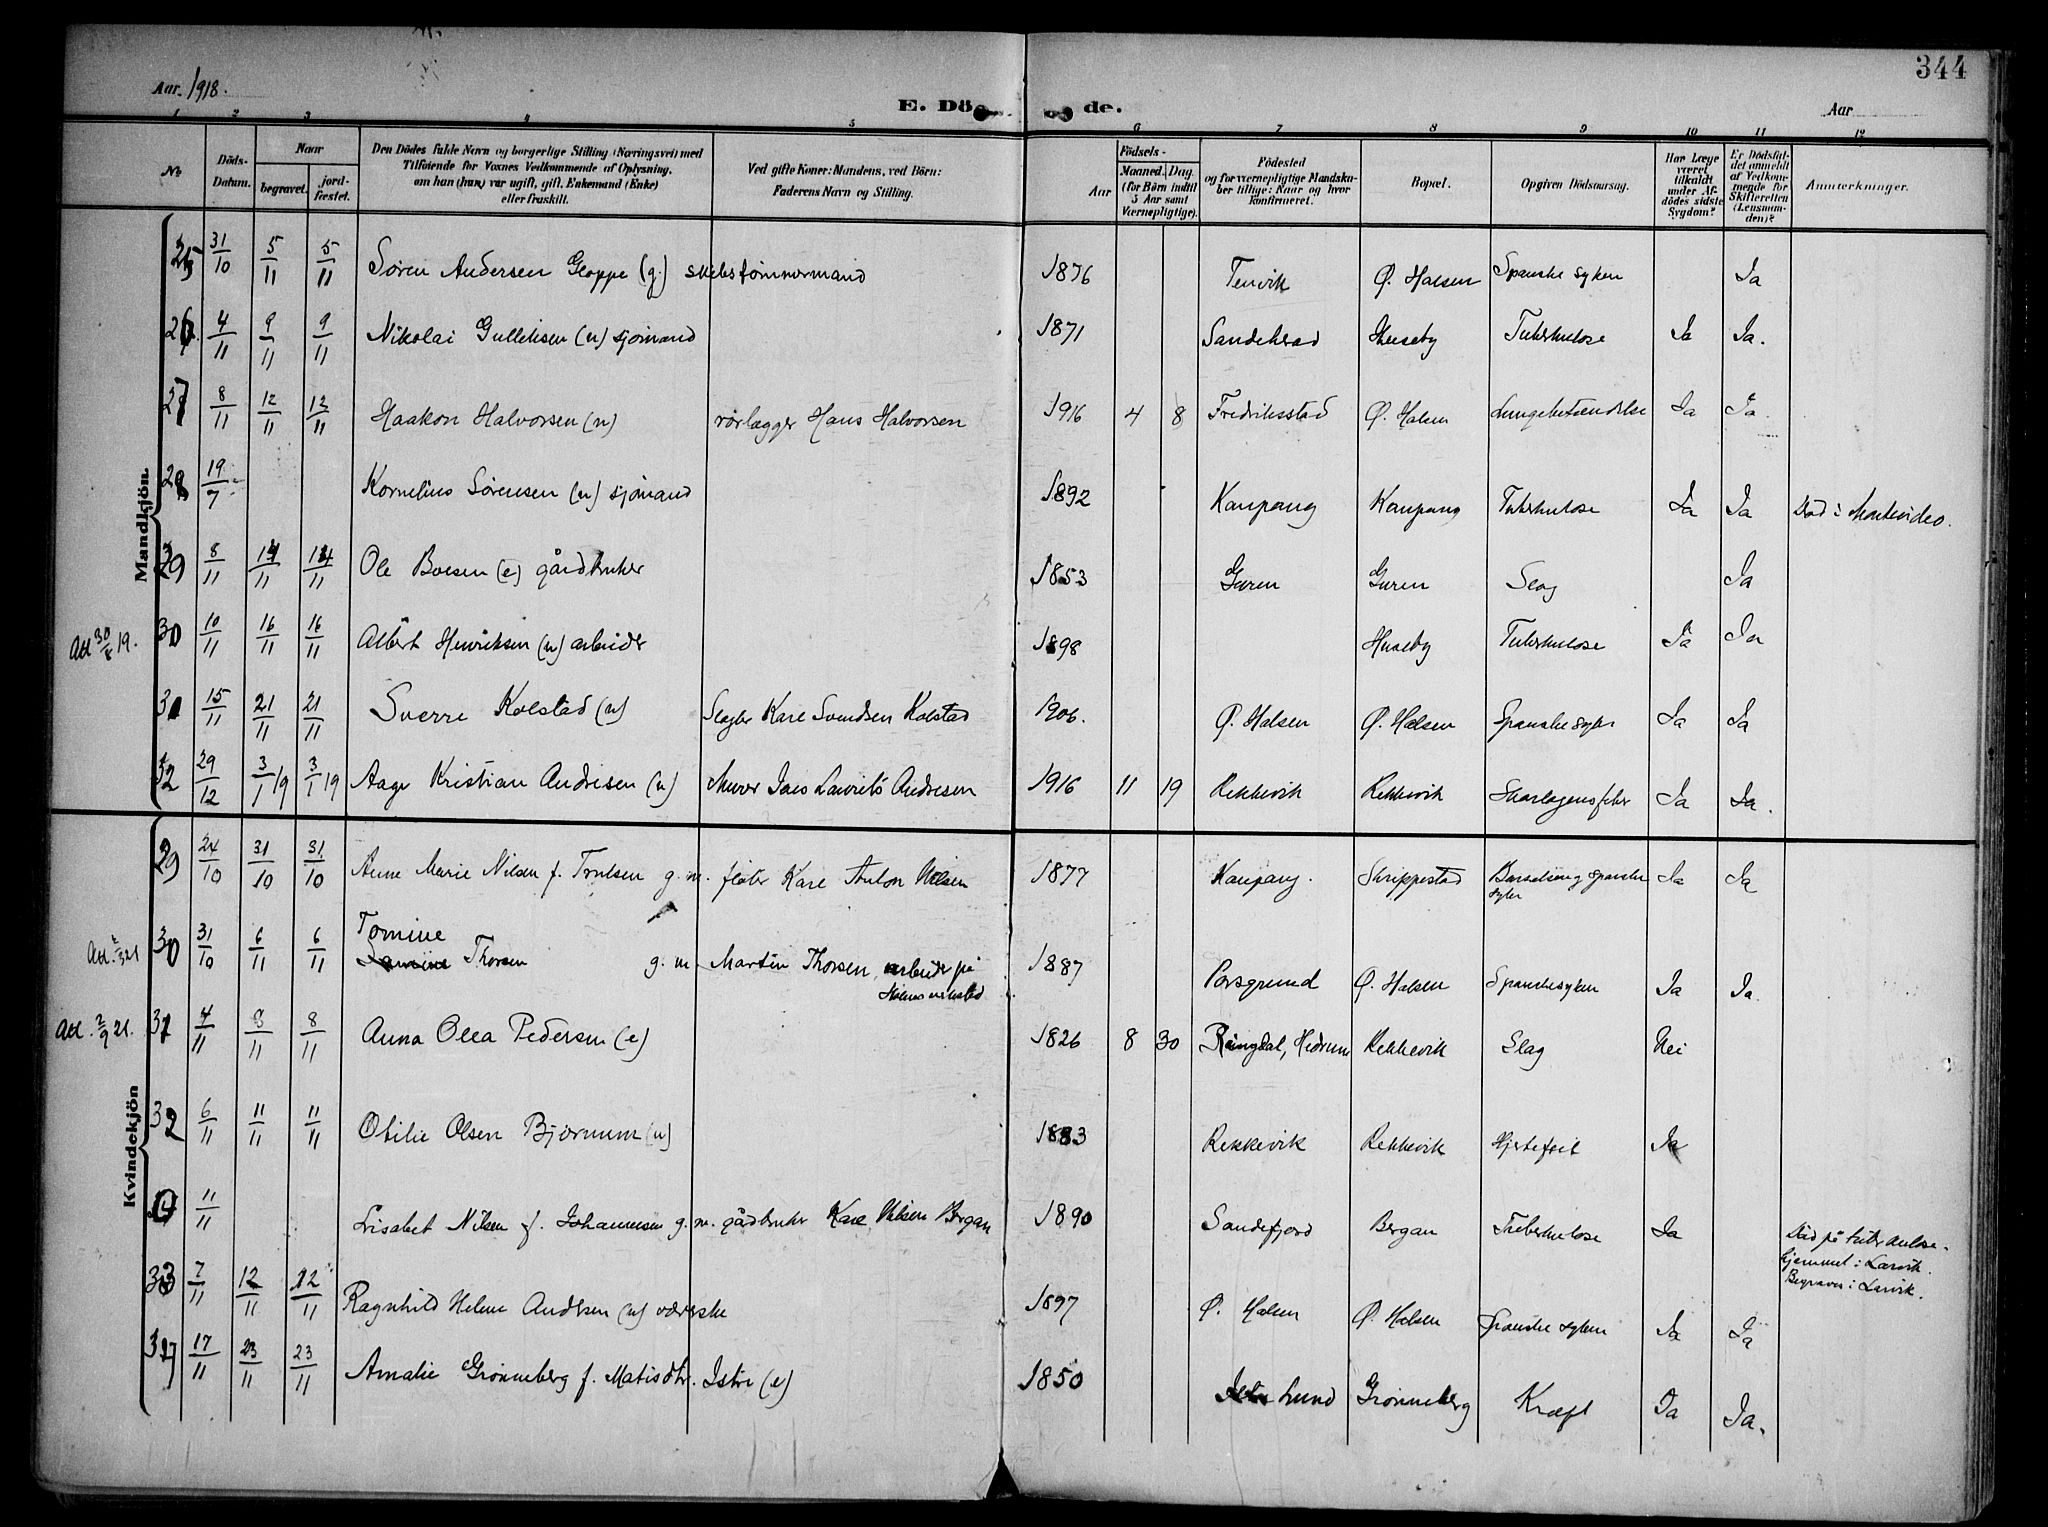 344
Aar 1918.
E. Dö de.
Aar
1 2 3 4 5 6 7 8 9 10 11 12
No
Döds-Datum.
Naar
begravet.
jord-fæstet.
Den Dödes fulde Navn og borgerlige Stilling (Næringsvei) med
Tilföiende for Voxnes Vedkommende af Oplysning,
om han (hun) var ugift, gift, Enkemand (Enke)
eller fraskilt.
Ved gifte Koner: Mandens, ved Börn:
Faderens Navn og Stilling.
Födsels-
Aar
Maaned. Dag.
(for Börn indtil
5 Aar samt
Værnepligtige).
Födested
og for værnepligtige Mandska-
ber tillige: Naar og hvor
konfirmeret.
Bopæl.
Opgiven Dödsaarsag.
Har Læge
været
tilkaldt
under Af-
dödes sidste
Sygdom?
Er Dödsfal-
det anmeldt
af Vedkom-
mende for
Skifteretten
(Lensman-
den)?
Anmærkninger.
Mandkjön.
25 31/10 5/11 5/11 Søren Andersen Gloppe (g.) skibstømmermand 1876 Tenvik Ø. Halsen Spanske syken Ja
26 4/11 9/11 9/11 Nikolai Gulliksen (u) sjömand 1871 Sandeherad Huseby Tuberkulose Ja Ja.
27 8/11 12/11 12/11 Haakon Halvorsen (u) rørlægger Hans Halvorsen 1916 4 8 Fredriksstad Ø. Halsen Lungebetændelse Ja Ja.
28 19/7 Kornelius Sørensen (u) sjömand 1892 Kaupang Kaupang Tuberkulose Ja Ja Död i Montevideo.
29 8/11 14/11 14/11 Ole Boesen (e) gårdbruker 1853 Guren Guren Slag Ja
Att 30/8 19. 30 10/11 16/11 16/11 Albert Henriksen (u) arbeider 1898 Huseby Tuberkulose Ja Ja
31 15/11 21/11 21/11 Sverre Kolstad (u) Slagter Karl Svendsen Kolstad 1906. Ø. Halsen Ø. Halsen Spanskesyken Ja Ja
32 29/12 3/1 19 3/1 19 Aage Kristian Andresen (u) Murer Jens Laurits Andresen 1916 11 19 Rekkevik Rekkevik Skarlagensfeber Ja Ja.
Kvindekjön
29 24/10 31/10 31/10 Anne Marie Nilsen f. Trulsen g. m. fløter Karl Anton Nilsen 1877 Kaupang. Skrippestad Barselseng spanske
syken Ja Ja
Tomine
Att. 2/3 21 30 31/10 6/11 6/11 Thorsen g. m. Martin Thorsen, arbeider på
Holms verksted 1887 Porsgrund Ø. Halsen Spanskesyken Ja Ja.
Att. 2/9 21. 31 4/11 8/11 8/11 Anna Olea Pedersen (e) 1826 8 30 Ringdal, Hedrum Rekkevik Slag Nei
32 6/11 11/11 11/11 Otilie Olsen Bjørnum (u) 1883 Rekkevik Rekkevik Hjertefeil Ja
11/11 Lisabet Nilsen f. Johannesen g. m. gårdbruker Karl Nilsen Bergan 1890 Sandefjord Bergan Tuberkulose Ja Död på tuberkulose-
hjemmet i Larvik.
Begraves i Larvik.
33 7/11 12/11 12/11 Ragnhild Helene Andersen (u) værerske 1897 Ø. Halsen Ø. Halsen Spanske syken Ja Ja
17/11 23/11 23/11 Amalie Grønneberg f. Matisdtr. Istre (e) 1850 Lund Grønneberg Kræft Ja Ja.